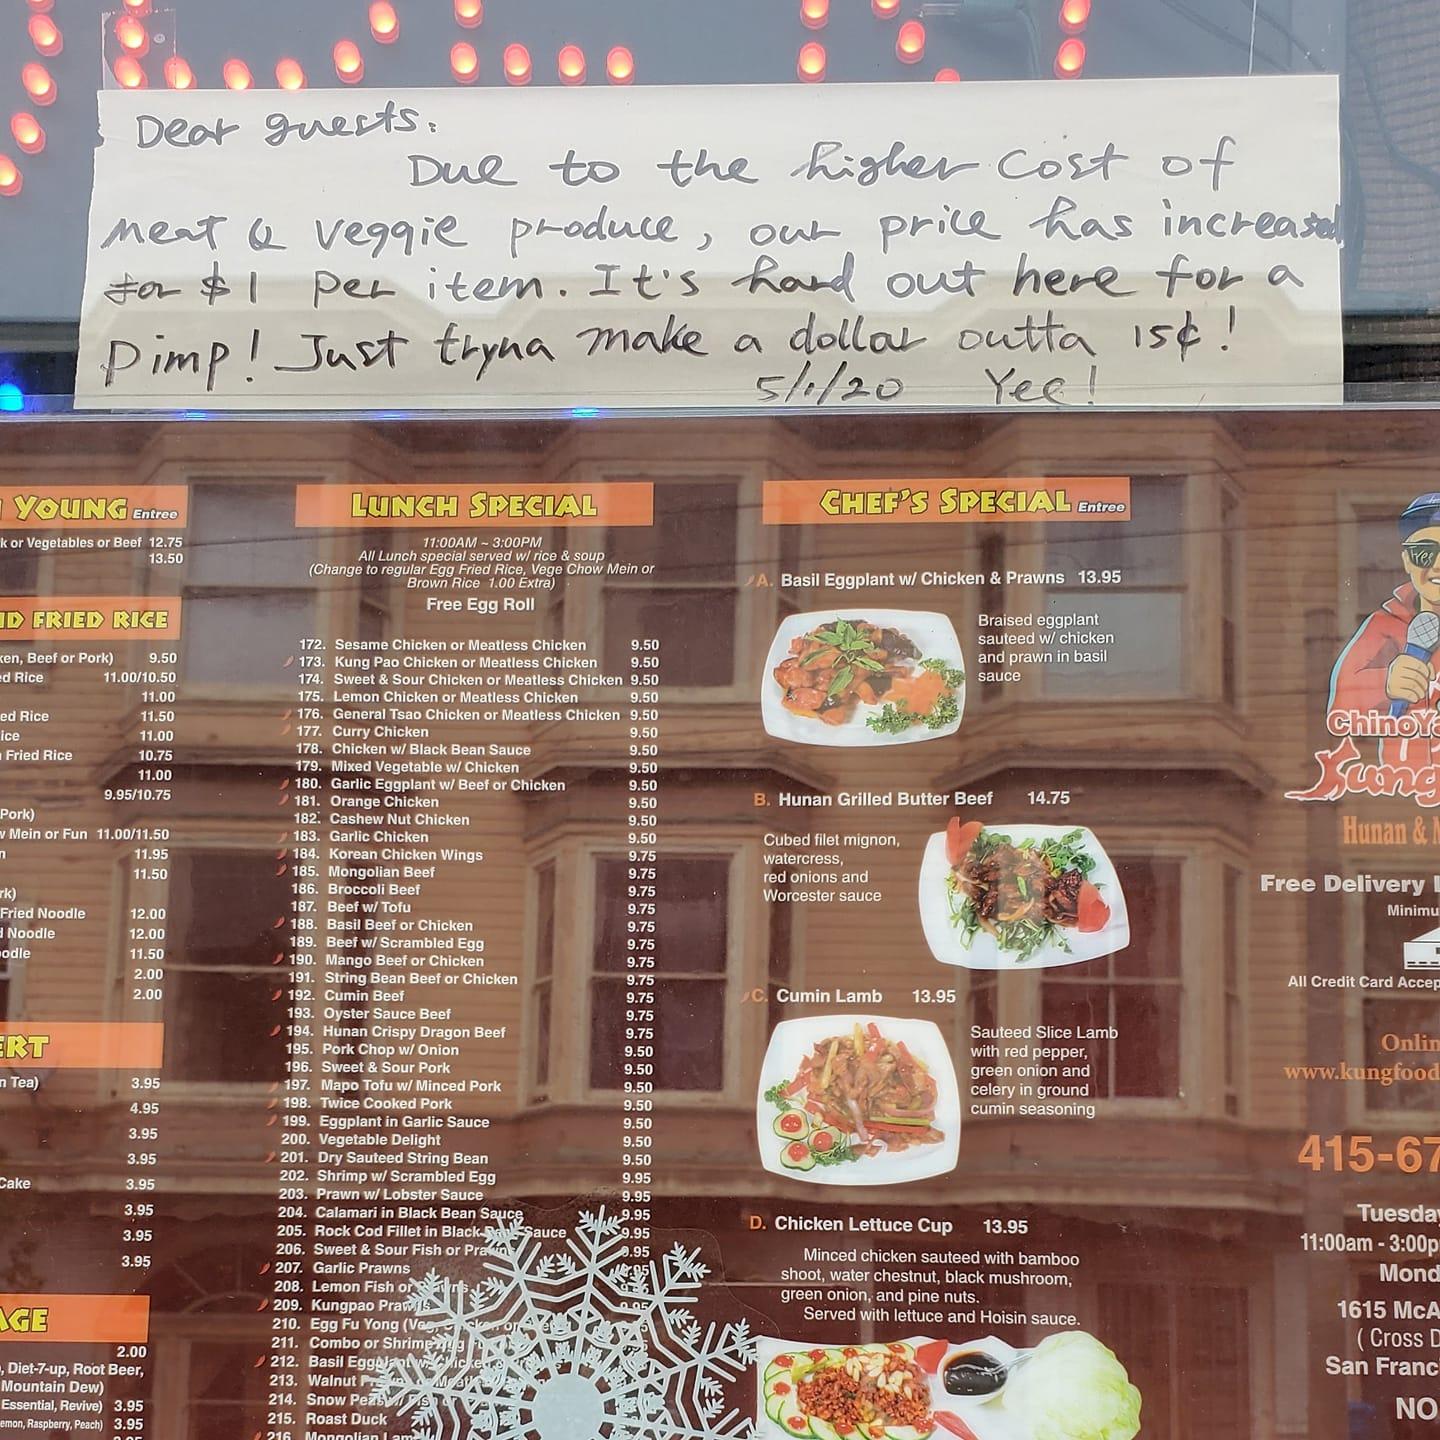 Dear guests:
Due to the higher cost of
meat & veggie produce, our price has increased
for $1 per item. It's hard out here for a
pimp! Just tryna make a dollar outta 15¢!
5/1/20 Yee!
YOUNG Entree
k or Vegetables or Beef 12.75
13.50
FRIED RICE
Beef or Pork) 9.50
Rice 11.00/10.50
11.00
Rice 11.50
11.00
Fried Rice 10.75
11.00
9.95/10.75
Pork)
Mein or Fun 11.00/11.50
11.95
11.50
Fried Noodle 12.00
Noodle 12.00
11.50
2.00
2.00
Tea) 3.95
4.95
3.95
3.95
Cake 3.95
3.95
3.95
3.95
2.00
Diet-7-up, Root Beer,
Mountain Dew)
Essential, Revive) 3.95
Raspberry, Peach) 3.95
LUNCH SPECIAL
11:00AM ~ 3:00PM
All Lunch special served w/ rice & soup
(Change to regular Egg Fried Rice, Vege Chow Mein or
Brown Rice 1.00 Extra)
Free Egg Roll
172. Sesame Chicken or Meatless Chicken 9.50
173. Kung Pao Chicken or Meatless Chicken 9.50
174. Sweet & Sour Chicken or Meatless Chicken 9.50
175. Lemon Chicken or Meatless Chicken 9.50
176. General Tsao Chicken or Meatless Chicken 9.50
177. Curry Chicken 9.50
178. Chicken w/ Black Bean Sauce 9.50
179. Mixed Vegetable w/ Chicken 9.50
180. Garlic Eggplant w/ Beef or Chicken 9.50
181. Orange Chicken 9.50
182. Cashew Nut Chicken 9.50
183. Garlic Chicken 9.50
184. Korean Chicken Wings 9.75
185. Mongolian Beef 9.75
186. Broccoli Beef 9.75
187. Beef w/ Tofu 9.75
188. Basil Beef or Chicken 9.75
189. Beef w/ Scrambled Egg 9.75
190. Mango Beef or Chicken 9.75
191. String Bean Beef or Chicken 9.75
192. Cumin Beef 9.75
193. Oyster Sauce Beef 9.75
194. Hunan Crispy Dragon Beef 9.75
195. Pork Chop w/ Onion 9.50
196. Sweet & Sour Pork 9.50
197. Mapo Tofu w/ Minced Pork 9.50
198. Twice Cooked Pork 9.50
199. Eggplant in Garlic Sauce 9.50
200. Vegetable Delight 9.50
201. Dry Sauteed String Bean 9.50
202. Shrimp w/ Scrambled Egg 9.95
203. Prawn w/ Lobster Sauce 9.95
204. Calamari in Black Bean Sauce 9.95
205. Rock Cod Fillet in Black Bean Sauce 9.95
206. Sweet & Sour Fish or Prawns 9.95
207. Garlic Prawns 9.95
208. Lemon Fish or Prawns
209. Kungpao Prawns 9.95
210. Egg Fu Yong
211. Combo or Shrimp
212. Basil Eggplant w/ Chicken
213. Walnut
214. Snow Peas w/
215. Roast Duck
216. Mongolian Lamb
CHEF'S SPECIAL Entree
A. Basil Eggplant w/ Chicken & Prawns 13.95
Braised eggplant
sauteed w/ chicken
and prawn in basil
sauce
B. Hunan Grilled Butter Beef 14.75
Cubed filet mignon,
watercress,
red onions and
Worcester sauce
C. Cumin Lamb 13.95
Sauteed Slice Lamb
with red pepper,
green onion and
celery in ground
cumin seasoning
D. Chicken Lettuce Cup 13.95
Minced chicken sauteed with bamboo
shoot, water chestnut, black mushroom,
green onion, and pine nuts.
Served with lettuce and Hoisin sauce.
ChinoYa
Kung
Hunan &
Free Delivery
Minimu
All Credit Card Accep
Onlin
www.kungfood
415-67
Tuesday
11:00am - 3:00p
Mond
1615 McA
( Cross D
San Franc
NO